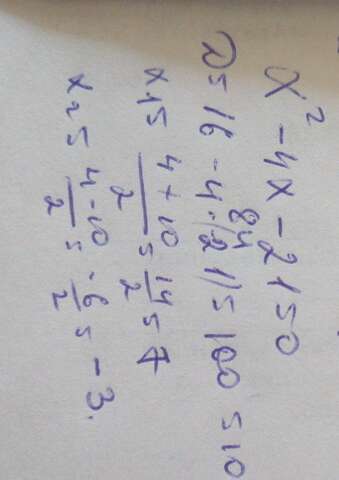 x² - 4x - 21 = 0
84
D = 16 - 4·(-21) = 100 = 10
x₁ = \frac{4 + 10}{2} = \frac{14}{2} = 7
x₂ = \frac{4 - 10}{2} = \frac{-6}{2} = -3.